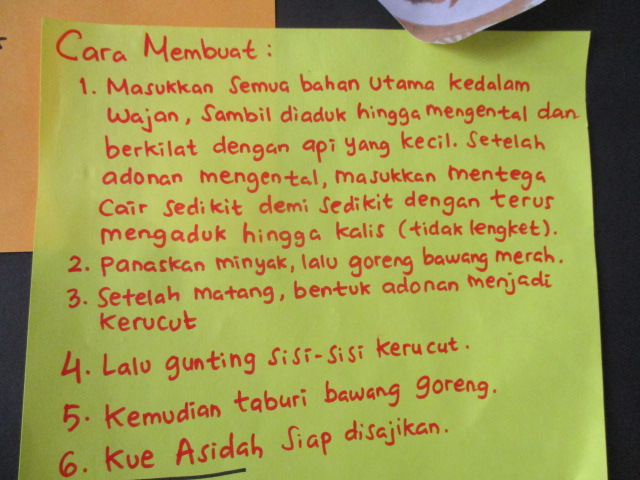 Cara Membuat :
1. Masukkan Semua bahan Utama kedalam
Wajan, Sambil diaduk hingga mengental dan
berkilat dengan api yang kecil. Setelah
adonan mengental, masukkan mentega
Cair sedikit demi Sedikit dengan terus
mengaduk hingga kalis (tidak lengket).
2. Panaskan minyak, lalu goreng bawang merah.
3. Setelah matang, bentuk adonan menjadi
Kerucut
4. Lalu gunting Sisi-Sisi kerucut.
5. Kemudian taburi bawang goreng.
6. Kue Asidah Siap disajikan.